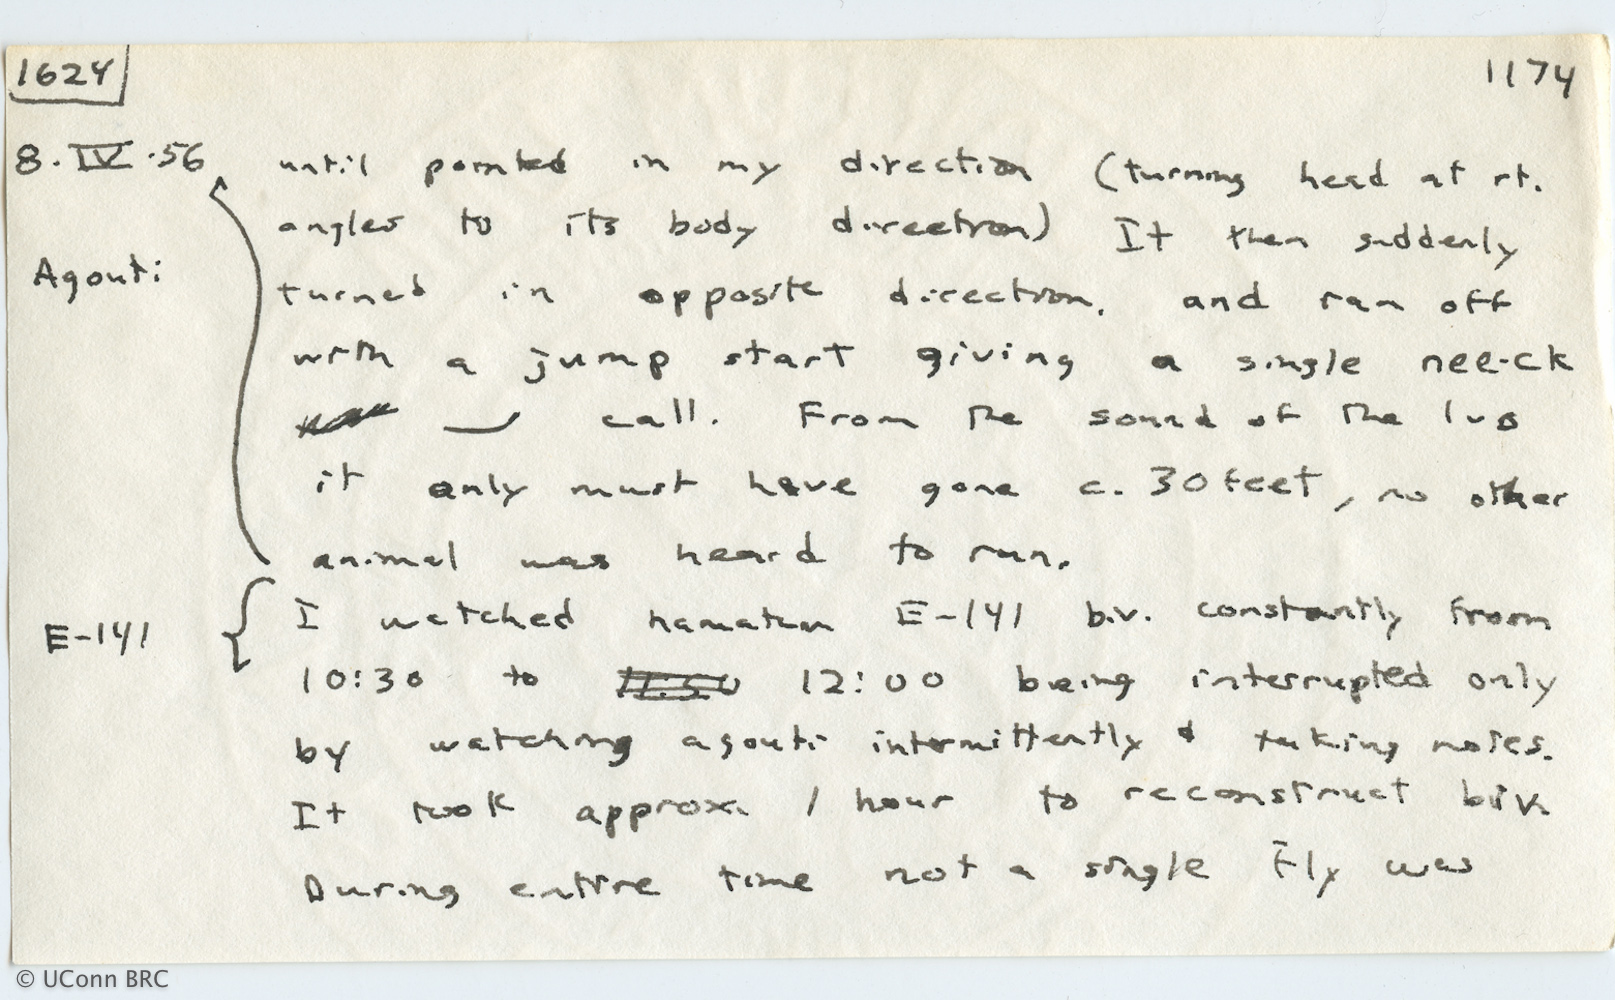 1624
1174
8.IV.56 until pointed in my direction (turning head at rt.
angles to its body direction) It then suddenly
Agouti turned in opposite direction, and ran off
with a jump start giving a single nee-ck
call. From the sound of the lvs
it only must have gone c. 30 feet, no other
animal was heard to run.
E-141 I watched hamatum E-141 biv. constantly from
10:30 to 11:50 12:00 being interrupted only
by watching agouti intermittently & taking notes.
It took approx. 1 hour to reconstruct biv.
During entire time not a single fly was
© UConn BRC